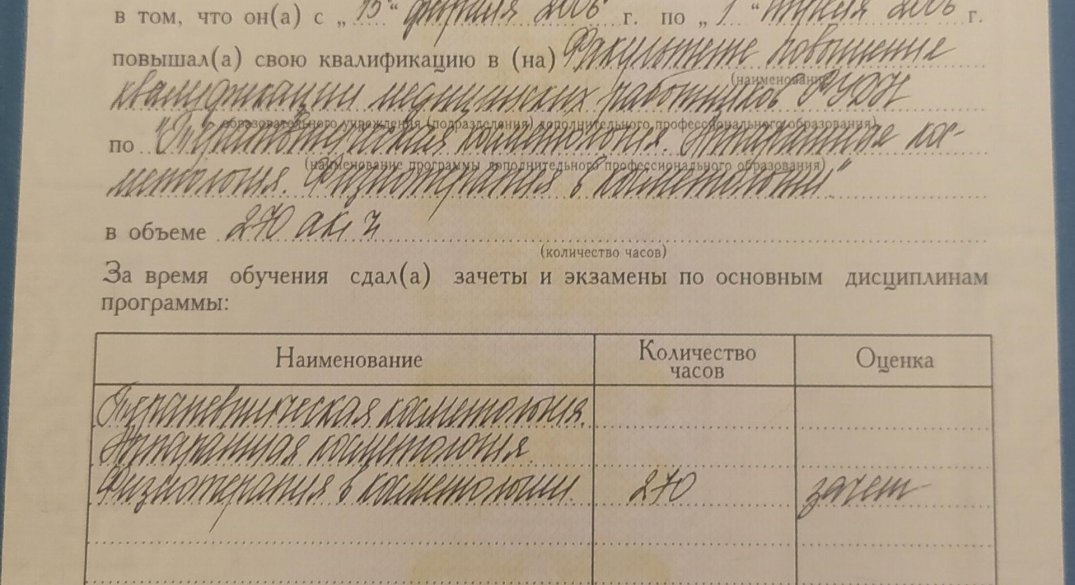 в том, что он(а) с „ 15 “ февраля 2006 г. по „ 1 “ 2006 г.
повышал(а) свою квалификацию в (на) Факультете повышение
(наименование
квалификации медицинских работников РУДН
образовательного учреждения (подразделения) дополнительного профессионального образования)
по "Терапевтическая косметология. Аппаратная кос-
(наименование программы дополнительного профессионального образования)
метология. Физиотерапия в косметологии"
в объеме 270 ак ч
(количество часов)
За время обучения сдал(а) зачеты и экзамены по основным дисциплинам
программы:
Наименование Количество часов Оценка
Терапевтическая косметология.
Аппаратная косметология.
Физиотерапия в косметологии 270 зачет